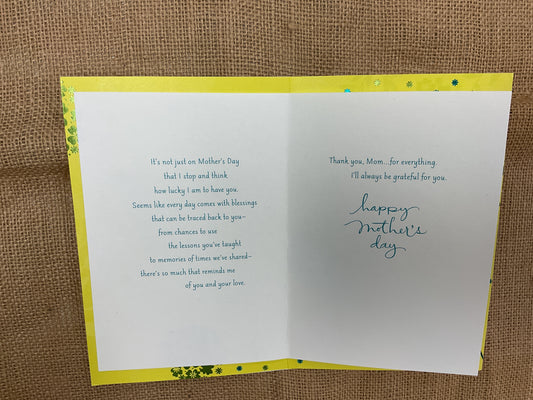 It's not just on Mother's Day
that I stop and think
how lucky I am to have you.
Seems like every day comes with blessings
that can be traced back to you—
from chances to use
the lessons you've taught
to memories of times we've shared—
there's so much that reminds me
of you and your love.
Thank you, Mom...for everything.
I'll always be grateful for you.
happy
Mother's
day